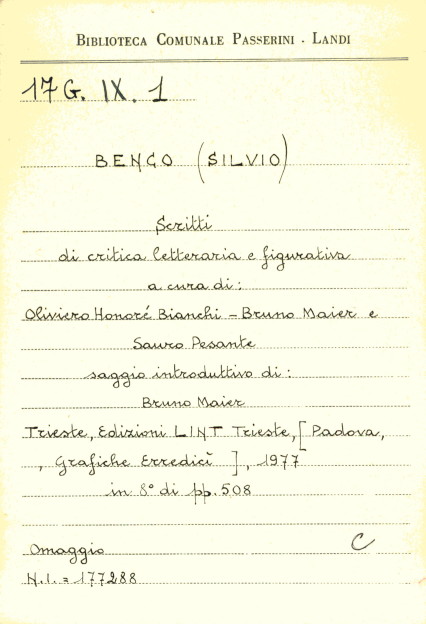 BIBLIOTECA COMUNALE PASSERINI - LANDI
17 G. IX. 1
BENCO (SILVIO)
Scritti
di critica letteraria e figurativa
a cura di:
Oliviero Honoré Bianchi - Bruno Maier e
Sauro Pesante
saggio introduttivo di:
Bruno Maier
Trieste, Edizioni LINT Trieste, [Padova,
, Grafiche Erredicì ], 1977
in 8° di pp. 508
Omaggio C
N.I. = 177288